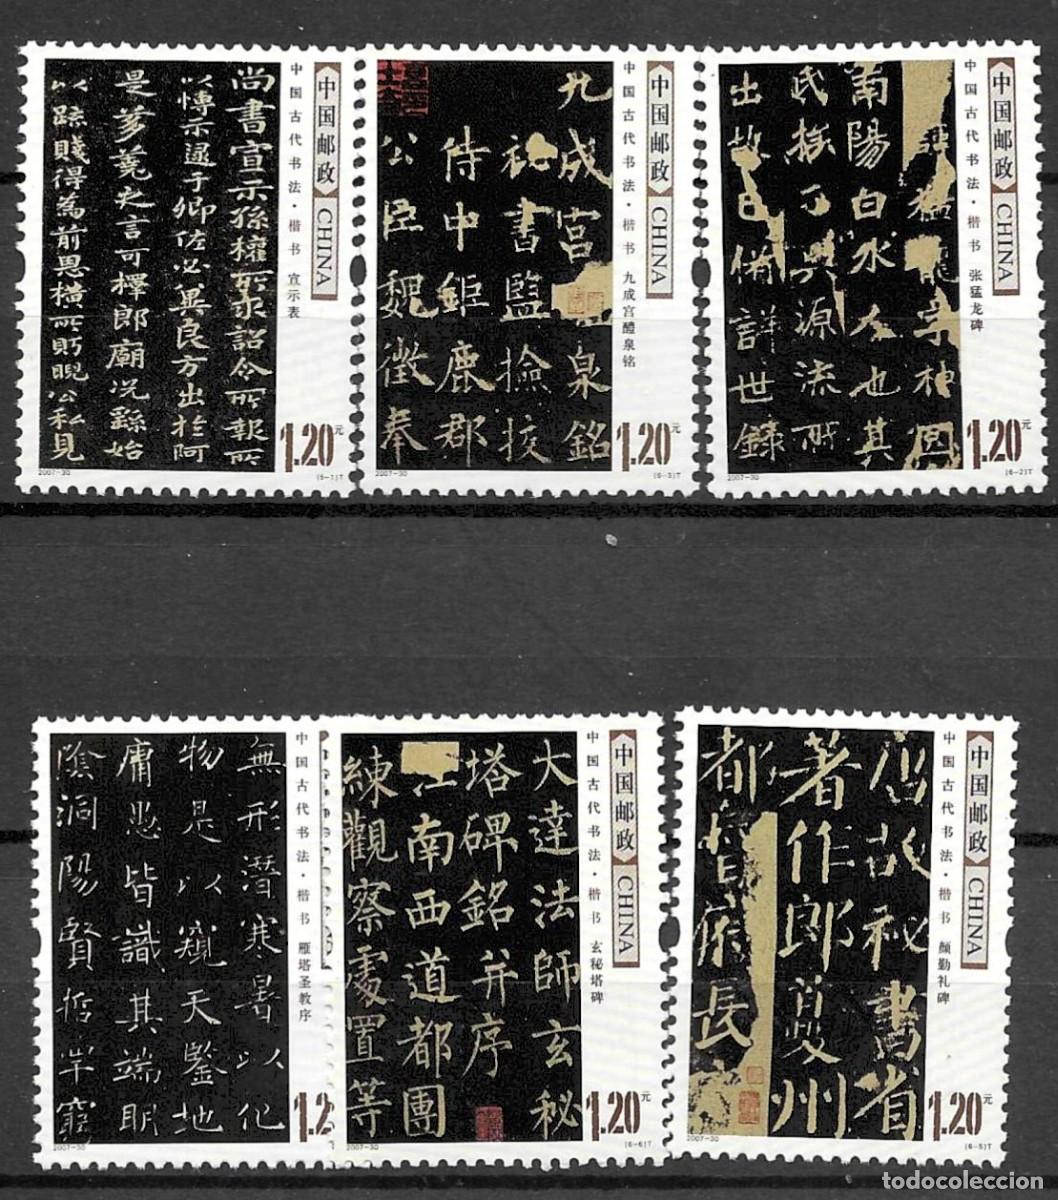 中国邮政 CHINA
中国古代书法·楷书 宣示表
尚書宣示孫權所求詔令所報所
以博示逮于卿佐必冀良方出於阿
是芻蕘之言可擇郎廟況繇始
以疏賤得為前恩橫所盱睨公私見
1.20元
2007-30
(6-1)T
中国邮政 CHINA
中国古代书法·楷书 九成宫醴泉铭
九成宮泉銘
秘書監撿挍
侍中鉅鹿郡
公臣魏徵奉
1.20元
2007-30
(6-3)T
中国邮政 CHINA
中国古代书法·楷书 张猛龙碑
猛龍字神冏
南陽白水人也其
氏族分興源流所
出故已備詳世錄
1.20元
2007-30
(6-2)T
中国古代书法·楷书 雁塔圣教序
無形潛寒暑以化
物是以窺天鑒地
庸愚皆識其端明
陰洞陽賢哲罕窮
1.2
2007-30
中国邮政 CHINA
中国古代书法·楷书 玄秘塔碑
大達法師玄秘
塔碑銘并序
江南西道都團
練觀察處置等
1.20元
2007-30
(6-6)T
中国邮政 CHINA
中国古代书法·楷书 颜勤礼碑
唐故秘書省
著作郎夔州
都督府長
1.20元
2007-30
(6-5)T
todocoleccion